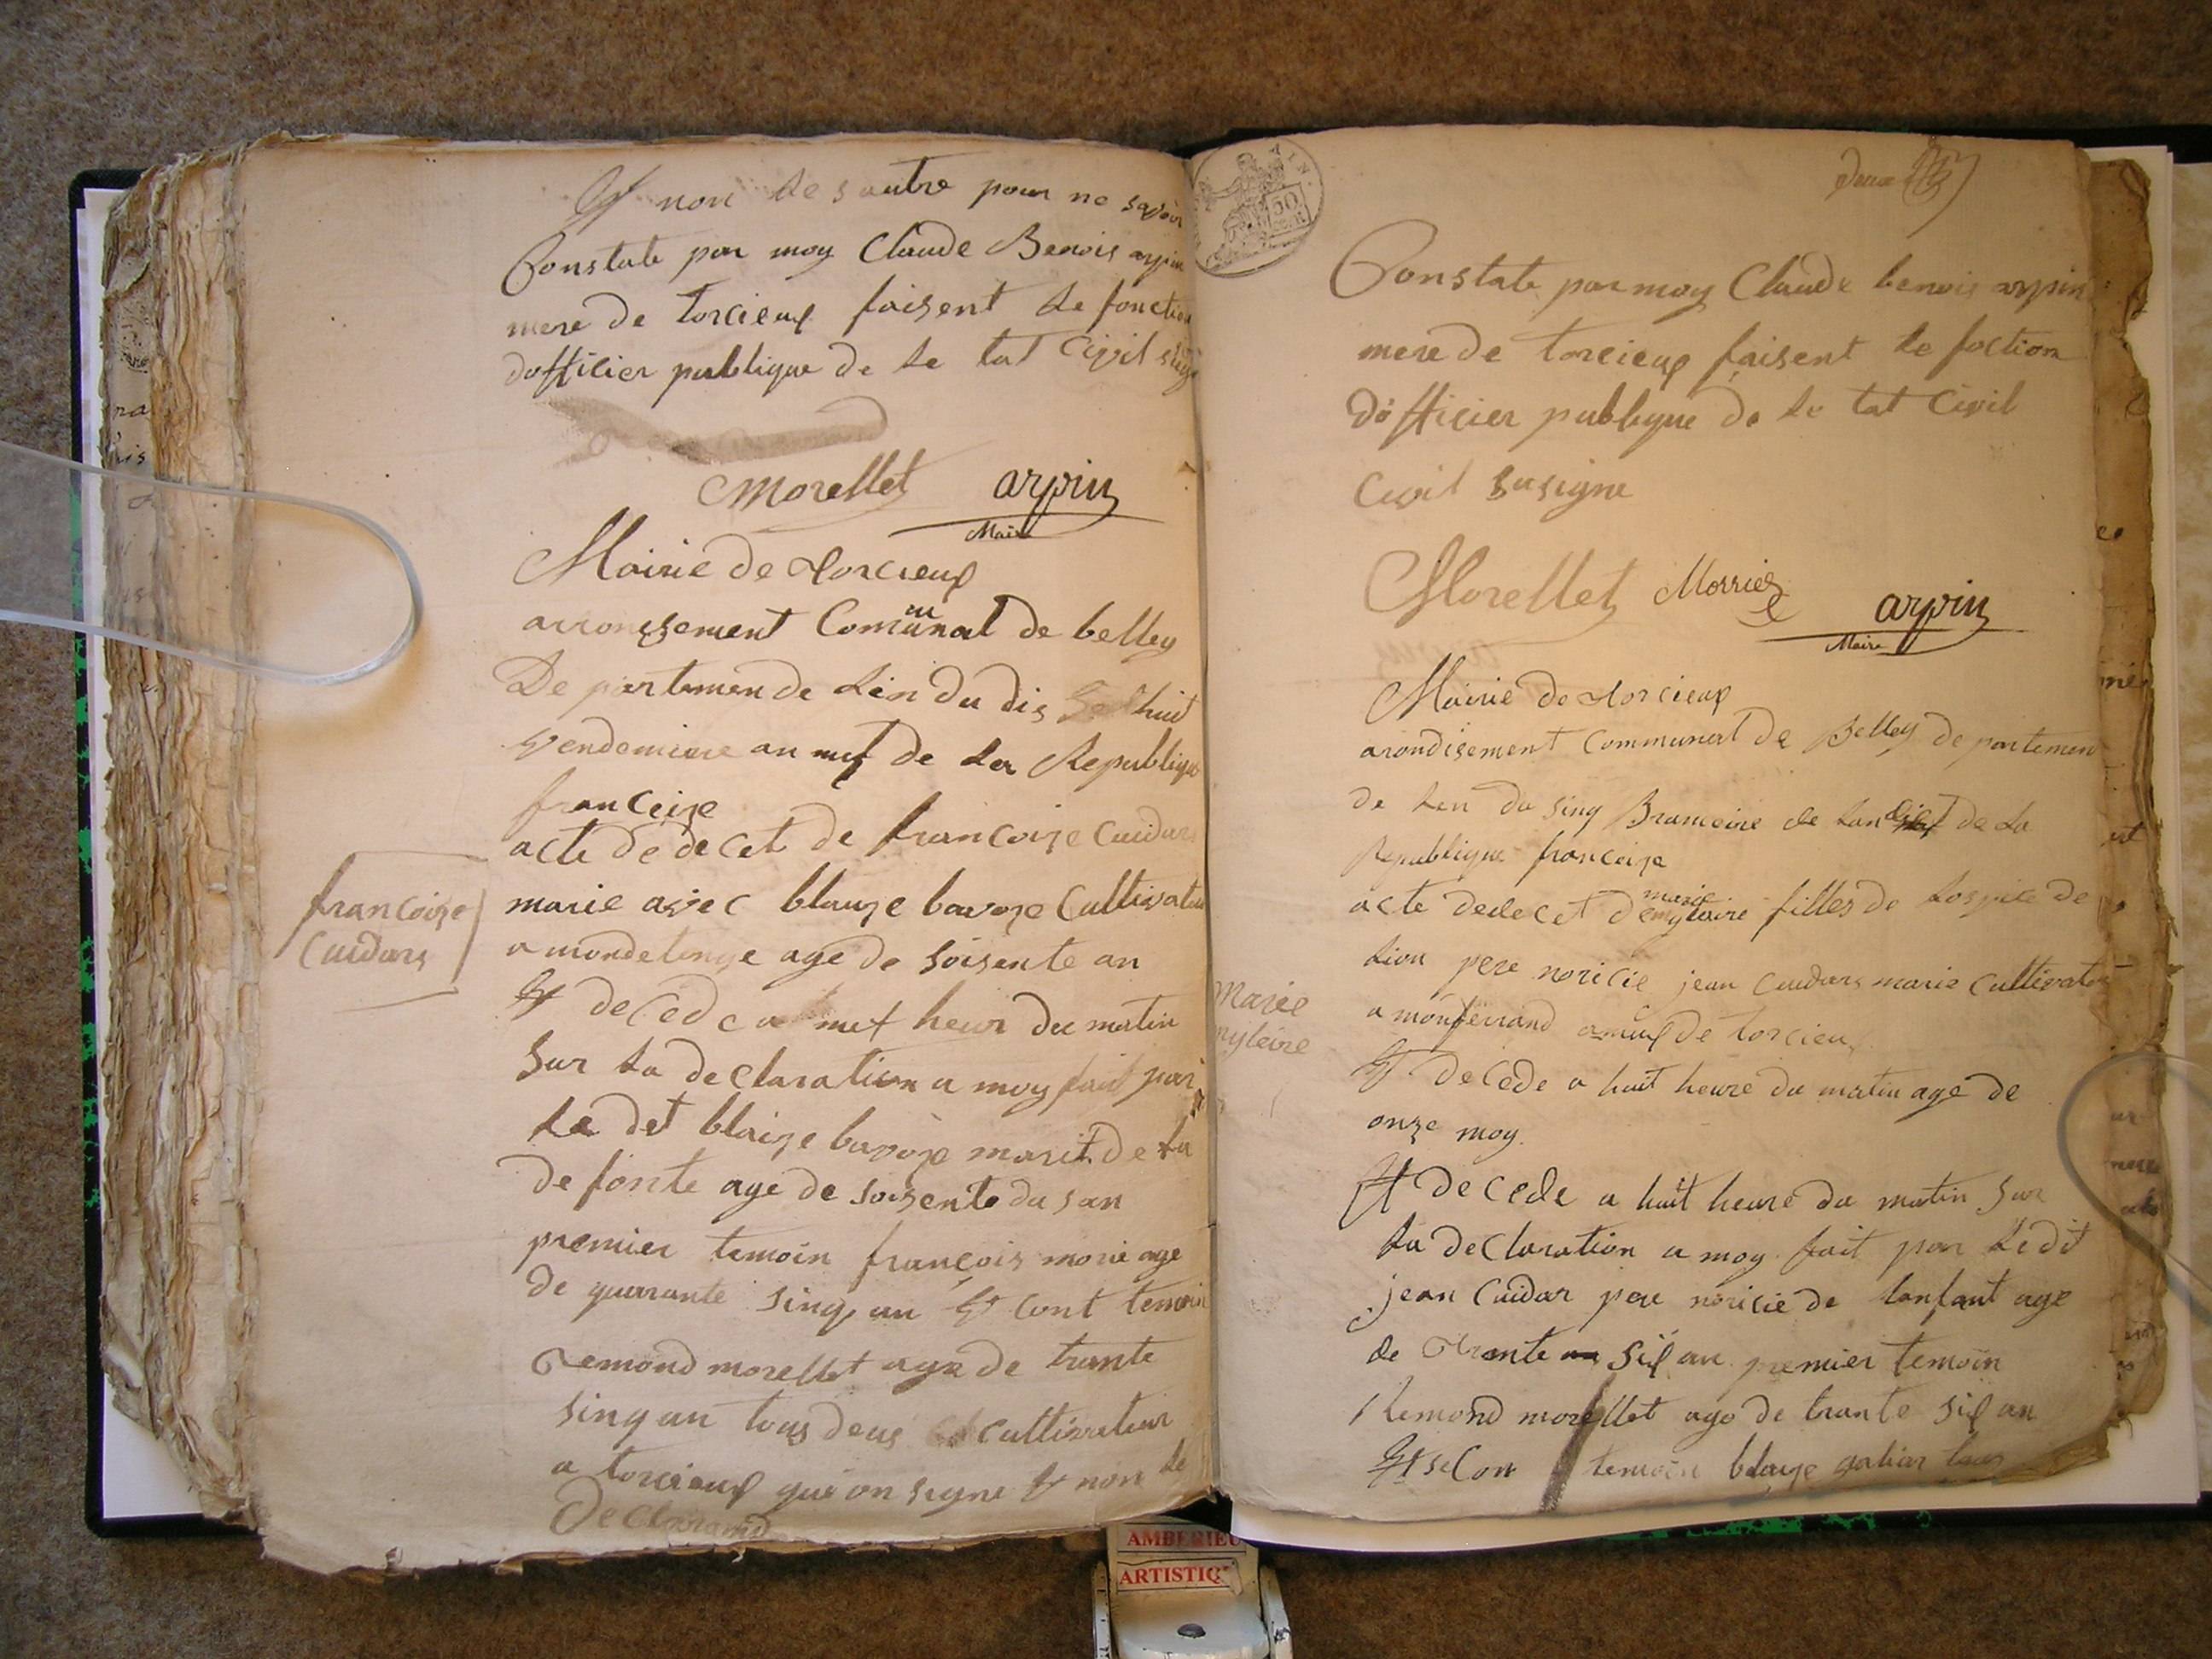 Et non de sautre pour ne savoir
Constate par moy Claude Benois arpin
mere de torcieux faisent de fonction
dofficier publique de le tat Civil
Morellet arpin
Maire
Mairie de torcieux
arronssement Communal de belley
De partemen de Lein du dis huit
vendemiere an nuf de La Republique
franceize
acte de decet de francoize Cuidars
marie avec blauze bavoze Cultivateur
a mondelenge age de soisente an
francoize
Cuidars
Et deced a nuf heur du matin
Sur La declaration a moy fait par
Le det blaize bavoze marit de La
defonte age de soisente du san
premier temoin françois morie age
de quarante sinq an Et Cont temoin
Remond morellet age de trante
sinq an tous deus cultivateur
a torcieux qui on signe Et non Le
Declarand
AIN.
50
deux
Constate par moy Claude benois arpin
mere de torcieux faisent de foction
dofficier publique de le tat Civil
Civil Susigne
Morellet Morriez arpin
Maire
Mairie de torcieux
arondisement Communal de Belley departemen
de Len du sinq Brumeire de Lan de La
Republique francoize
acte dedecet de marie mylaire filles de Lospice de
Lion pere noricie jean Cuidars marie Cultivateur
a monferrand de torcieu
Marie
myleire
Et decede a huit heure du matin age de
onze moy.
Et decede a huit heure du matin sur
La declaration a moy fait par Le dit
jean Cuidar pere noricie de Lanfant age
de trante six an premier temoin
Remond morellet age de trante six an
Et seCon temoin blauze
AMBERIEU
ARTISTIQ